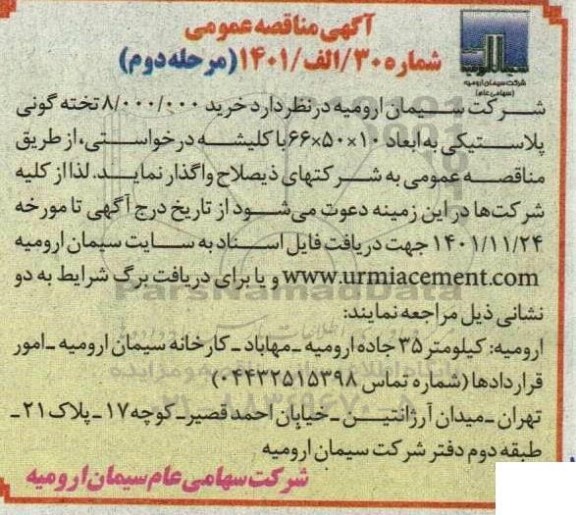 آگهی مناقصه عمومی
شماره ۳۰/الف/۱۴۰۱ (مرحله دوم)
شرکت سیمان ارومیه
(سهامی عام)
شرکت سیمان ارومیه در نظر دارد خرید ۸/۰۰۰/۰۰۰ تخته گونی
پلاستیکی به ابعاد ۱۰×۵۰×۶۶ با کلیشه درخواستی، از طریق
مناقصه عمومی به شرکتهای ذیصلاح واگذار نماید. لذا از کلیه
شرکت‌ها در این زمینه دعوت می‌شود از تاریخ درج آگهی تا مورخه
۱۴۰۱/۱۱/۲۴ جهت دریافت فایل اسناد به سایت سیمان ارومیه
www.urmiacement.com و یا برای دریافت برگ شرایط به دو
نشانی ذیل مراجعه نمایند:
ارومیه: کیلومتر ۳۵ جاده ارومیه ـ مهاباد ـ کارخانه سیمان ارومیه ـ امور
قراردادها (شماره تماس ۰۴۴۳۲۵۱۵۳۹۸)
تهران ـ میدان آرژانتین ـ خیابان احمد قصیر ـ کوچه ۱۷ ـ پلاک ۲۱ ـ
طبقه دوم دفتر شرکت سیمان ارومیه
شرکت سهامی عام سیمان ارومیه
ParsNamadData